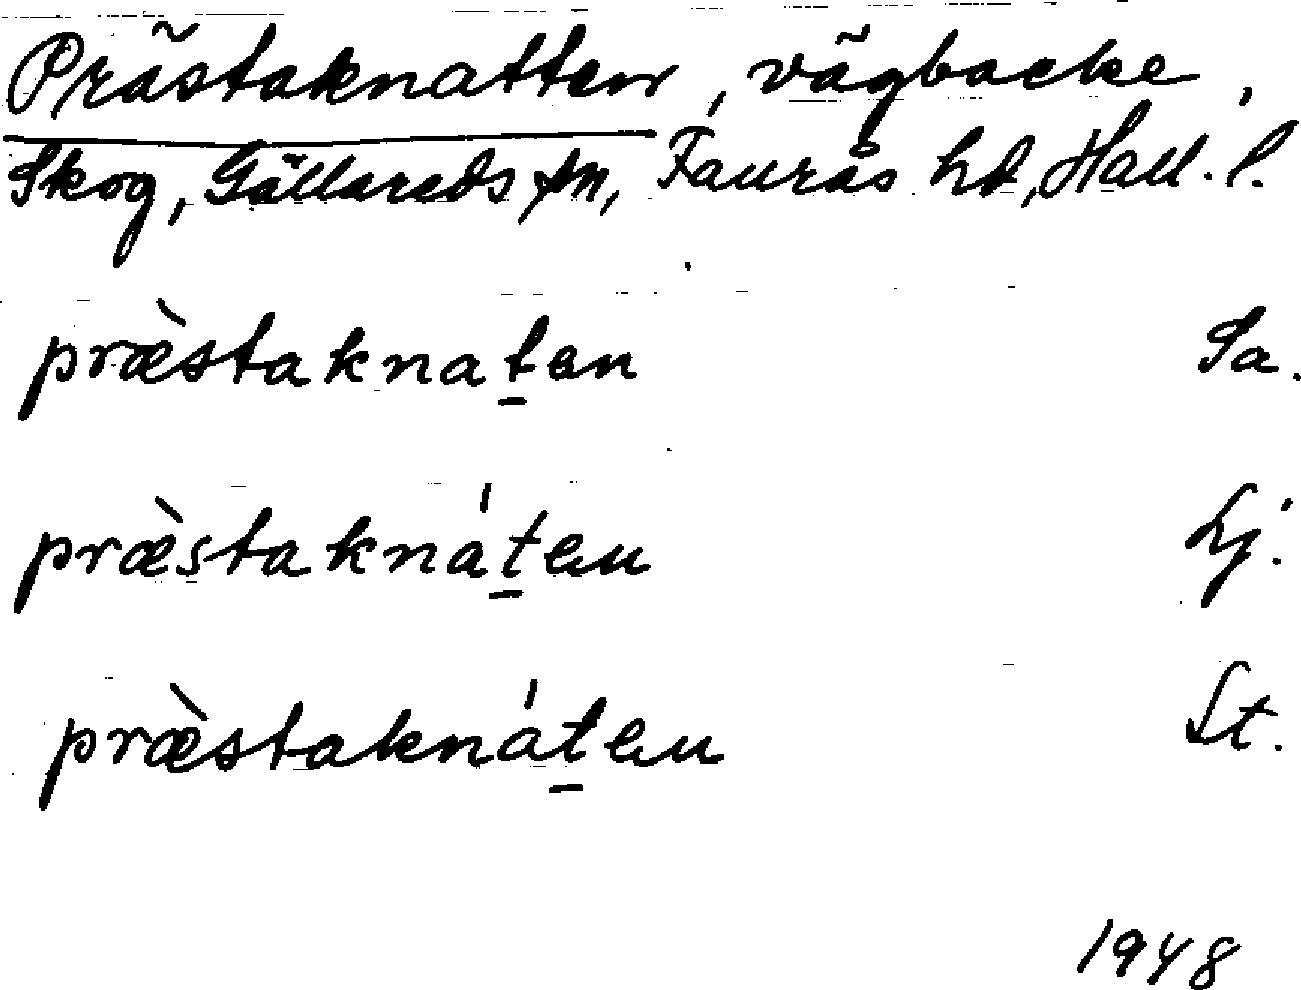 Prästaknatten, vägbacke,
Skog, Gällareds sn, Faurås hd, Hall. l.
præ̀staknat̲en Sa.
præ̀staknát̲en Lj.
præ̀staknát̲en St.
1948